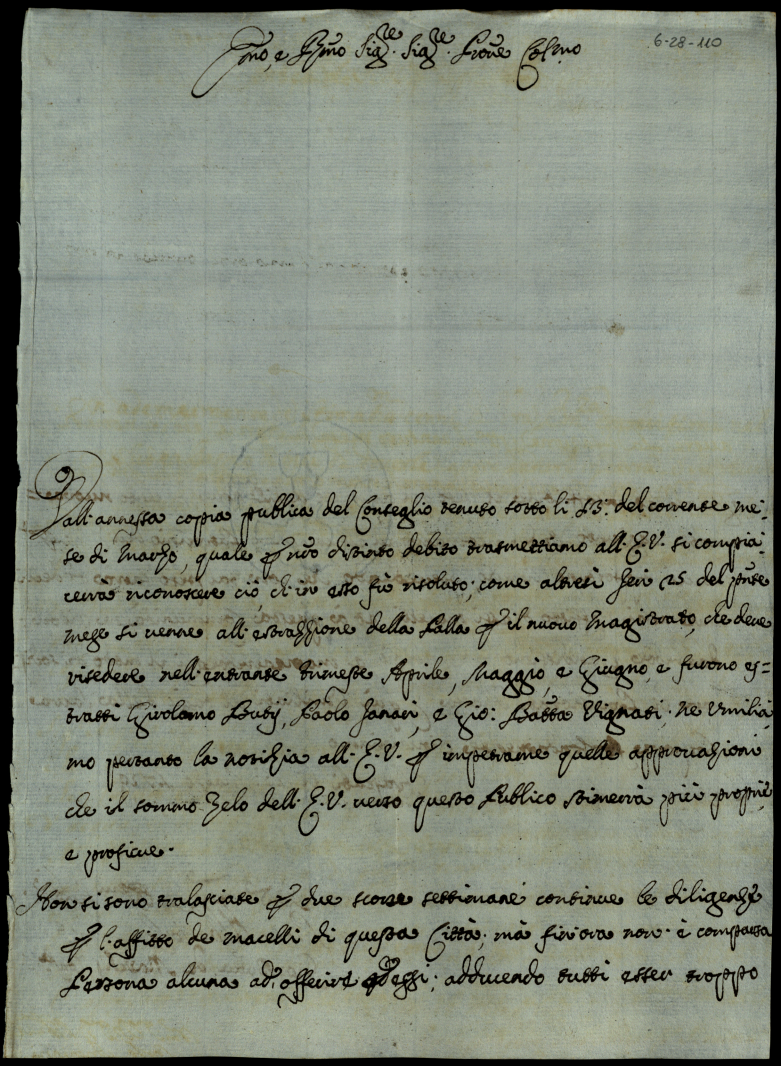 6-28-110
Jmo, e Rmo Sigre. Sigre. Prone Colmo
Dall'annessa copia publica del Conseglio tenuto sotto li 13: del corrente me-
se di Marzo, quale p nro distinto debito trasmettiamo all'E.V. si compia-
cerrà riconoscere ciò, ch'in esso fù risoluto; come altresì Jeri 25 del pnte
mese si venne all'estrazzione della Palla p il nuovo Magistrato, che deve
risedere nell'entrante trimestre Aprile, Maggio, e Giugno, e furono es=
tratti Girolamo Butij, Paolo Janari, e Gio: Batta Vignati; ne Umilia
mo pertanto la notizia all'E.V. p impetrarne quelle approvazioni
che il sommo Zelo dell'E.V. verso questo Publico stimerrà più proprie,
e proficue.
Non si sono tralasciate p due scorse settimane continue le diligenze
p l'affitto de macelli di questa Città; mà fin'ora non è comparsa
Persona alcuna ad offerire; adducendo tutti esser troppo